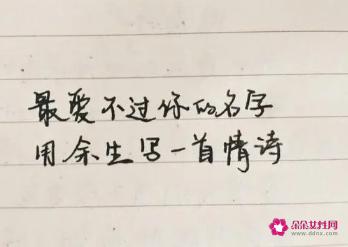 最爱不过你的名字
用余生写一首情诗
朵朵女性网
www.ddnx.com